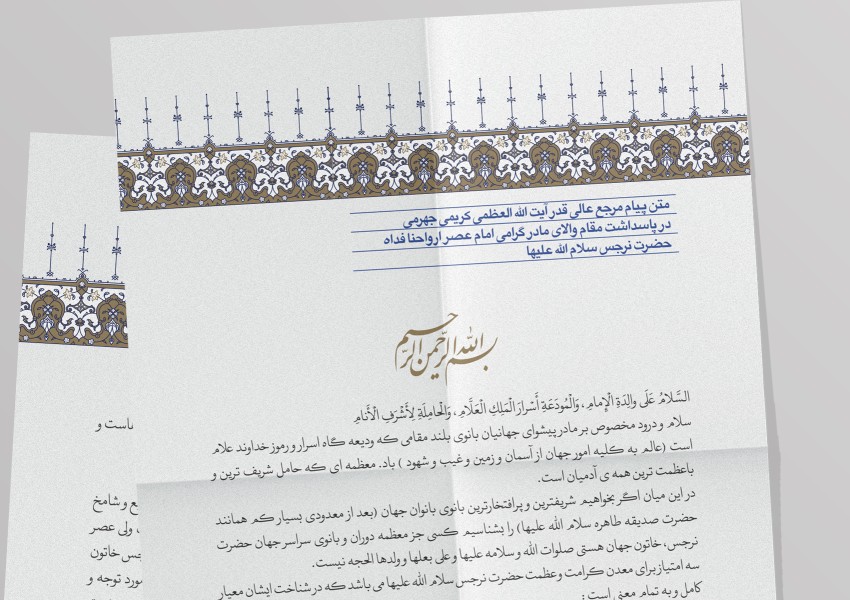 متن پیام مرجع عالی قدر آیت الله العظمی کریمی جهرمی
در پاسداشت مقام والای مادر گرامی امام عصر ارواحنا فداه
حضرت نرجس سلام الله علیها
بسم الله الرحمن الرحیم
السَّلامُ عَلَى والِدَةِ الْإِمامِ، وَالْمُودَعَةِ أَسْرارَ الْمَلِكِ الْعَلَّامِ، وَالْحامِلَةِ لِأَشْرَفِ الْأَنامِ
سلام و درود مخصوص بر مادر پیشوای جهانیان بانوی بلند مقامی که ودیعه گاه اسرار و رموز خداوند علام
است (عالم به کلیه امور جهان از آسمان و زمین و غیب و شهود ) باد. معظمه ای که حامل شریف ترین و
باعظمت ترین همه ی آدمیان است.
در این میان اگر بخواهیم شریفترین و پرافتخارترین بانوی بانوان جهان (بعد از معدودی بسیار کم همانند
حضرت صدیقه طاهره سلام الله علیها) را بشناسیم کسی جز معظمه دوران و بانوی سراسر جهان حضرت
نرجس، خاتون جهان هستی صلوات الله و سلامه علیها و علی بعلها و ولدها الحجه نیست.
سه امتیاز برای معدن کرامت وعظمت حضرت نرجس سلام الله علیها می باشد که در شناخت ایشان معیار
کامل و به تمام معنی است :
ماست و
ع و شامخ
ولی عصر
جس خاتون
مورد توجه و